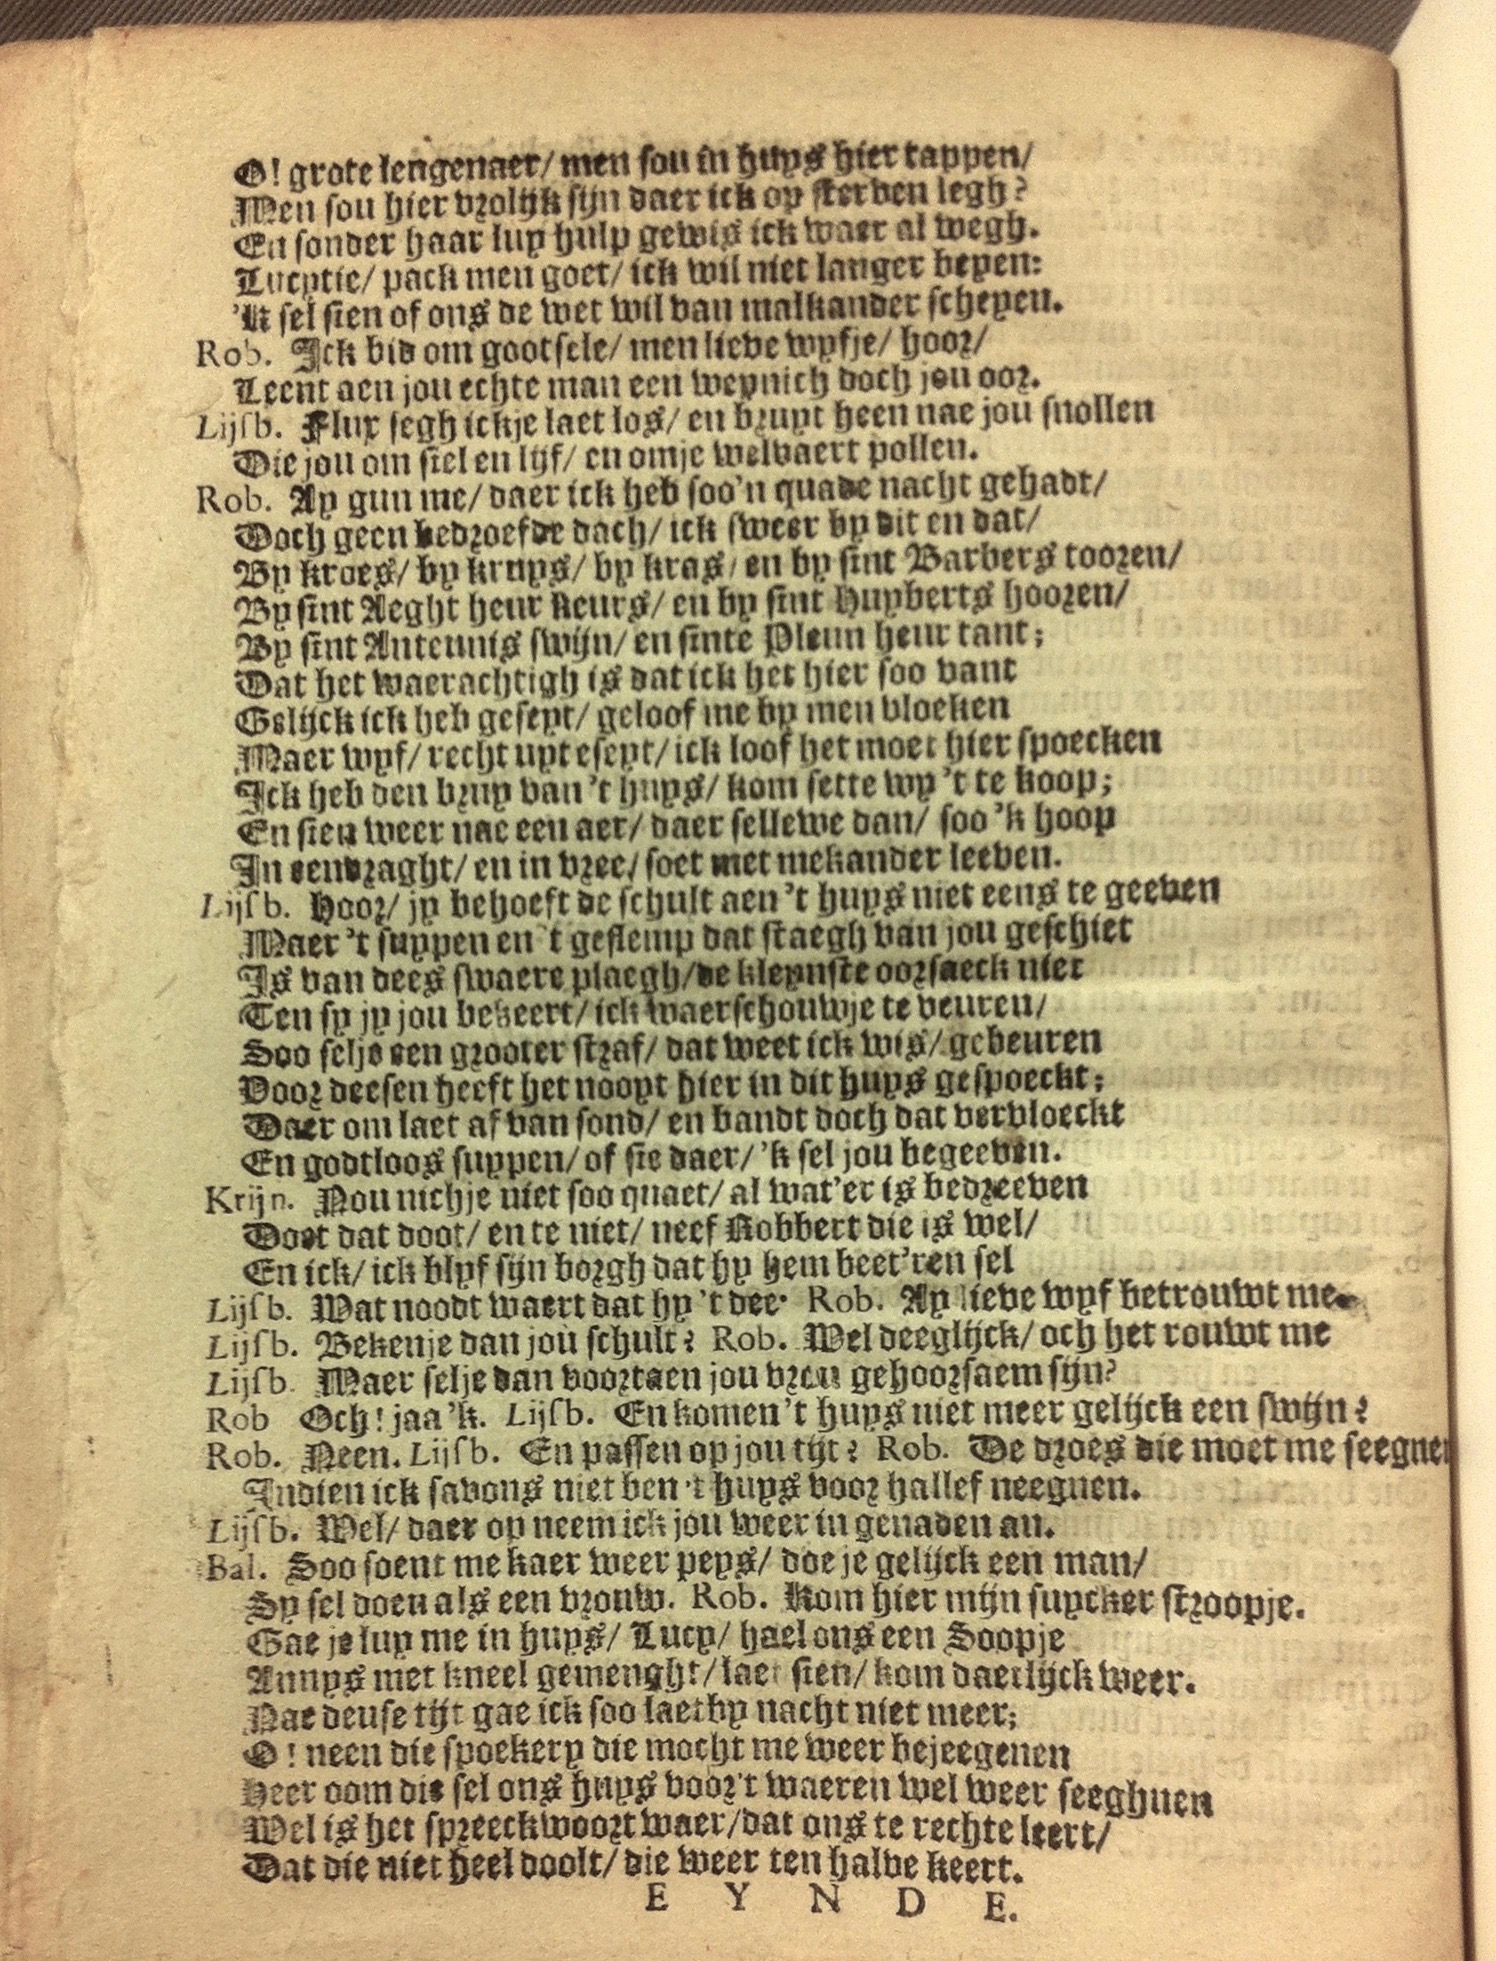 O! grote leugenaer/ men sou in huys hier tappen/
Men sou hier vrolijk sijn daer ick op sterven legh?
En sonder haar luy hulp gewis ick waer al wegh.
Lucytie/ pack men goet/ ick wil niet langer beyen:
'K sel sien of ons de wet wil van malkander scheyen.
Rob. Ick bid om gootsele/ men lieve wyfje/ hoor/
Leent aen jou echte man een weynich doch jou oor.
Lijsb. Flux segh ickje laet los/ en bruyt heen nae jou snollen
Die jou om siel en lijf/ en omje welvaert pollen.
Rob. Ay gun me/ daer ick heb soo'n quade nacht gehadt/
Doch geen bedroefde dach/ ick sweer by dit en dat/
By kroes/ by kruys/ by kras/ en by sint Barbers tooren/
By sint Aeght heur keurs/ en by sint Huyberts hooren/
By sint Anteunis swijn/ en sinte Pleun heur tant;
Dat het waerachtigh is dat ick het hier soo vant
Gelijck ick heb geseyt/ geloof me by men vloeken
Maer wyf/ recht uyt eseyt/ ick loof het moet hier spoecken
Ick heb den bruy van 't huys/ kom sette wy 't te koop;
En sien weer nae een aer/ daer sellewe dan/ soo 'k hoop
In eendraght/ en in vree/ soet met mekander leeven.
Lijsb. Hoor/ jy behoeft de schult aen 't huys niet eens te geeven
Maer 't suypen en 't geslemp dat staegh van jou geschiet
Is van dees swaere plaegh/ de kleynste oorsaeck niet
Ten sy jy jou bekeert/ ick waerschouwje te veuren/
Soo selje een grooter straf/ dat weet ick wis/ gebeuren
Voor deesen heeft het nooyt hier in dit huys gespoeckt;
Daer om laet af van sond/ en bandt doch dat vervloeckt
En godtloos suypen/ of sie daer/ 'k sel jou begeeven.
Krijn. Nou nichje niet soo quaet/ al wat'er is bedreeven
Doet dat doot/ en te niet/ neef Robbert die is wel/
En ick/ ick blyf sijn borgh dat hy hem beet'ren sel
Lijsb. Wat noodt waert dat hy 't dee. Rob. Ay lieve wyf betrouwt me.
Lijsb. Bekenje dan jou schult? Rob. Wel deeglijck/ och het rouwt me
Lijsb. Maer selje dan voortaen jou vrou gehoorsaem sijn?
Rob Och! jaa 'k. Lijsb. En komen 't huys niet meer gelijck een swijn?
Rob. Neen. Lijsb. En passen op jou tijt? Rob. De droes die moet me seegnen
Indien ick savons niet ben 't huys voor hallef neegnen.
Lijsb. Wel/ daer op neem ick jou weer in genaden an.
Bal. Soo soent me kaer weer peys/ doe je gelijck een man/
Sy sel doen als een vrouw. Rob. Kom hier mijn suycker stroopje.
Gae je luy me in huys/ Lucy/ hael ons een Soopje
Annys met kneel gemenght/ laet sien/ kom daetlijck weer.
Nae deuse tijt gae ick soo laet by nacht niet meer;
O! neen die spoekery die mocht me weer bejeegenen
Heer oom die sel ons huys voor't waeren wel weer seeghnen
Wel is het spreeckwoort waer/ dat ons te rechte leert/
Dat die niet heel doolt/ die weer ten halve keert.
E Y N D E.